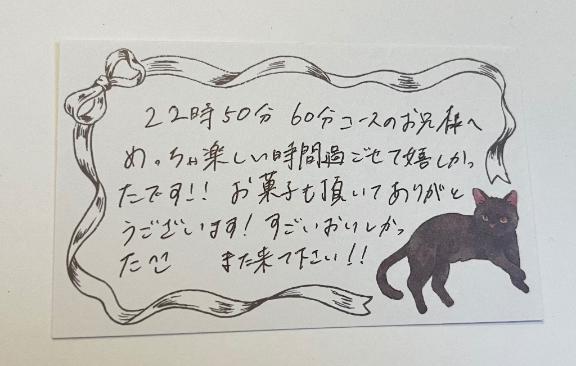 22時50分 60分コースのお兄様へ
めっちゃ楽しい時間過ごせて嬉しかっ
たです!! お菓子も頂いてありがと
うございます! すごいおいしかっ
た^^ また来て下さい!!